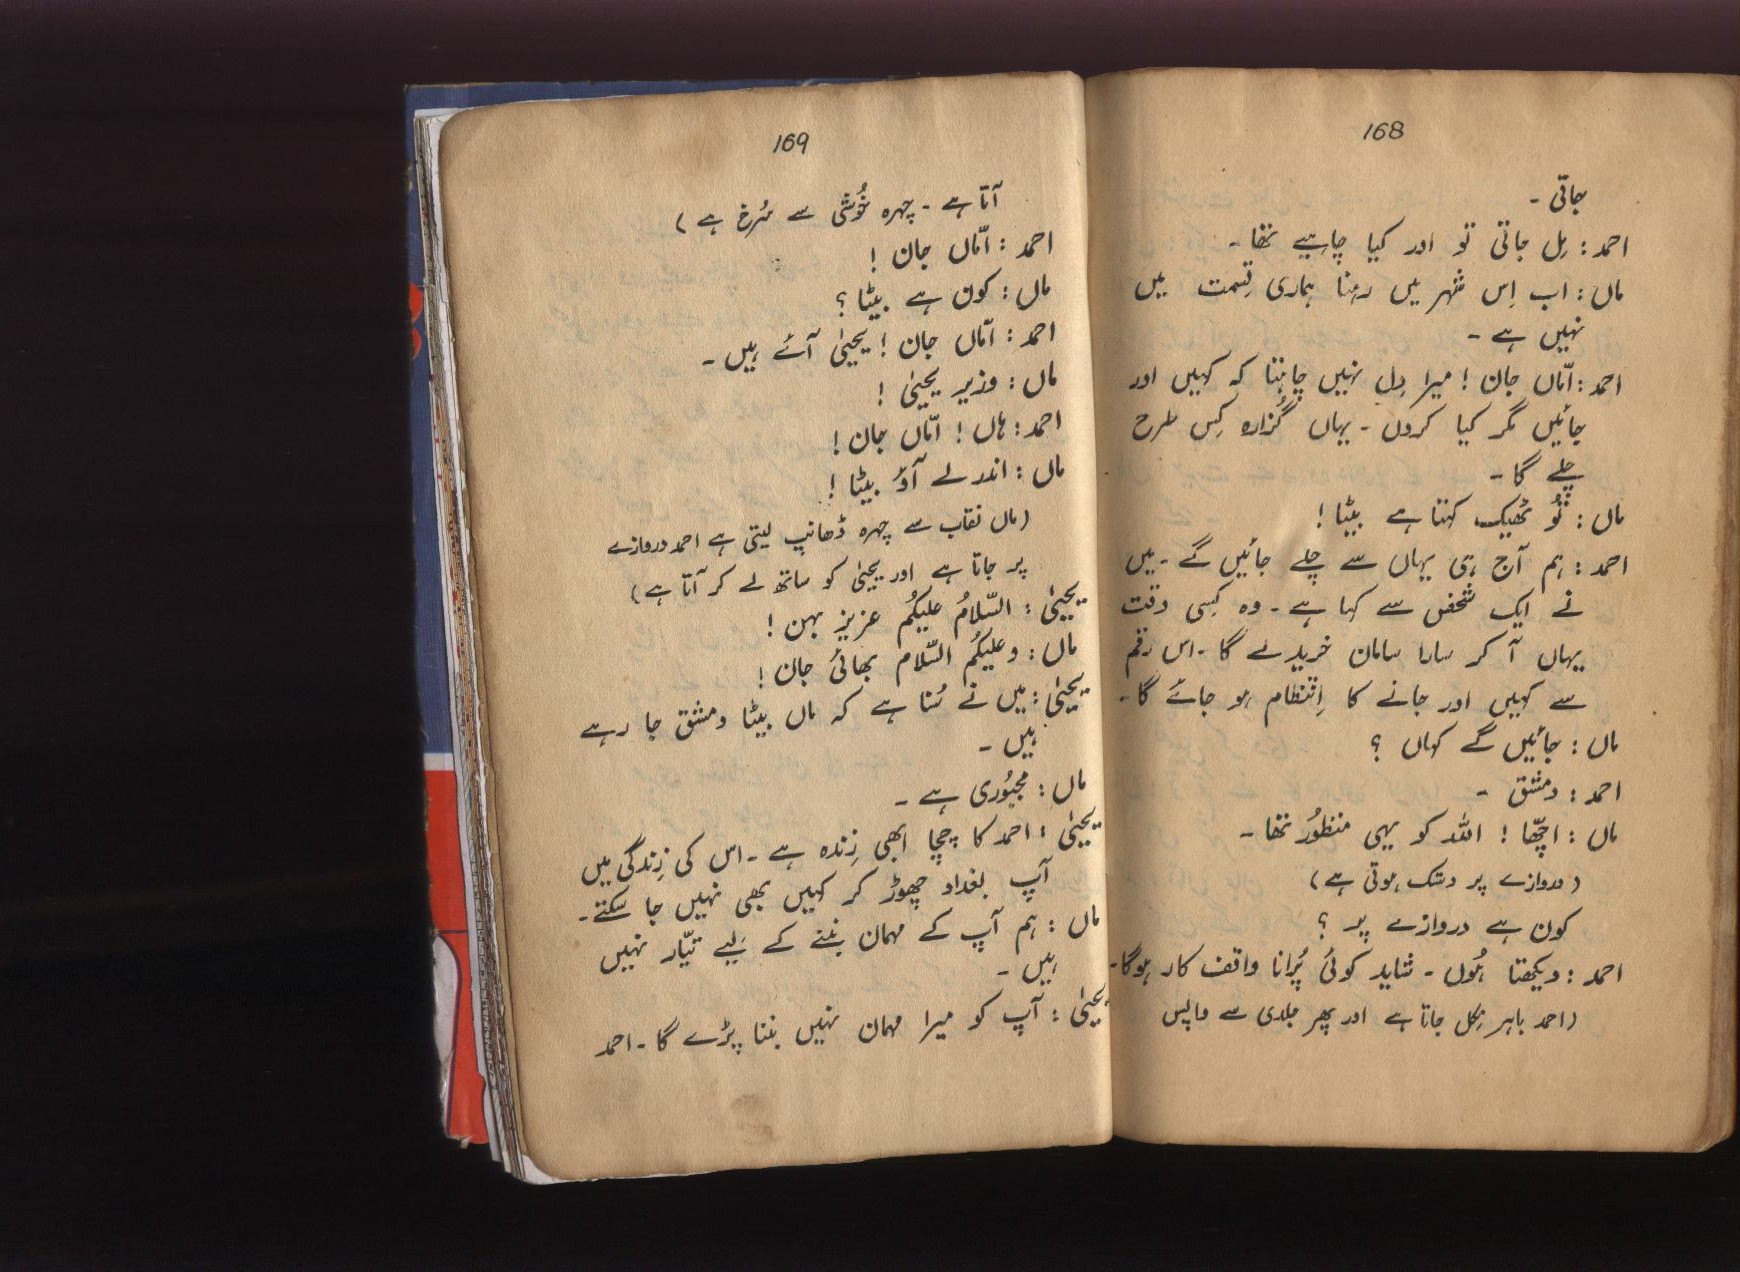 168
جاتی۔
احمد: مِل جاتی تو اور کیا چاہیے تھا۔
ماں: اب اِس شہر میں رہنا ہماری قِسمت میں
نہیں ہے۔
احمد: امّاں جان! میرا دِل نہیں چاہتا کہ کہیں اور
جائیں مگر کیا کروں۔ یہاں گُزارہ کِس طرح
چلے گا۔
ماں: تُو ٹھیک کہتا ہے بیٹا!
احمد: ہم آج ہی یہاں سے چلے جائیں گے۔ میں
نے ایک شخص سے کہا ہے۔ وہ کِسی وقت
یہاں آ کر سارا سامان خرید لے گا۔ اس رقم
سے کہیں اور جانے کا اِنتظام ہو جائے گا۔
ماں: جائیں گے کہاں ؟
احمد: دمشق ۔
ماں: اچّھا! اللہ کو یہی منظُور تھا۔
(دروازے پر دستک ہوتی ہے)
کون ہے دروازے پر ؟
احمد: دیکھتا ہُوں۔ شاید کوئی پُرانا واقف کار ہوگا۔
(احمد باہر نِکل جاتا ہے اور پھر جلدی سے واپس
169
آتا ہے۔ چہرہ خُوشی سے سُرخ ہے)
احمد: امّاں جان!
ماں: کون ہے بیٹا؟
احمد: امّاں جان! یحییٰ آئے ہیں۔
ماں: وزیر یحییٰ!
احمد: ہاں! امّاں جان!
ماں: اندر لے آؤ بیٹا!
(ماں نقاب سے چہرہ ڈھانپ لیتی ہے احمد دروازے
پر جاتا ہے اور یحییٰ کو ساتھ لے کر آتا ہے)
یحییٰ: السّلامُ علیکُم عزیز بہن!
ماں: وعلیکُم السّلام بھائی جان!
یحییٰ: میں نے سُنا ہے کہ ماں بیٹا دمشق جا رہے
ہیں۔
ماں: مجبُوری ہے۔
یحییٰ: احمد کا چچا ابھی زِندہ ہے۔ اس کی زِندگی میں
آپ بغداد چھوڑ کر کہیں بھی نہیں جا سکتے۔
ماں: ہم آپ کے مہمان بننے کے لیے تیّار نہیں
ہیں۔
یحییٰ: آپ کو میرا مہمان نہیں بننا پڑے گا۔ احمد